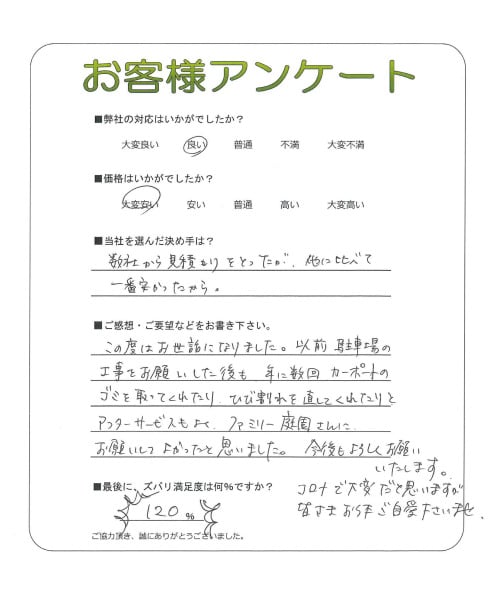 お客様アンケート
■弊社の対応はいかがでしたか？
大変良い　良い　普通　不満　大変不満
■価格はいかがでしたか？
大変安い　安い　普通　高い　大変高い
■当社を選んだ決め手は？
数社から見積もりをとったが、他に比べて
一番安かったから。
■ご感想・ご要望などをお書き下さい。
この度はお世話になりました。以前 駐車場の
工事をお願いした後も 年に数回 カーポートの
ゴミを取ってくれたり、ひび割れを直してくれたりと
アフターサービスもよく、ファミリー庭園さんに
お願いしてよかったと思いました。 今後もよろしくお願い
いたします。
コロナで大変だと思いますが
皆さま お体 ご自愛下さいませ。
■最後に、ズバリ満足度は何％ですか？
120 %
ご協力頂き、誠にありがとうございました。